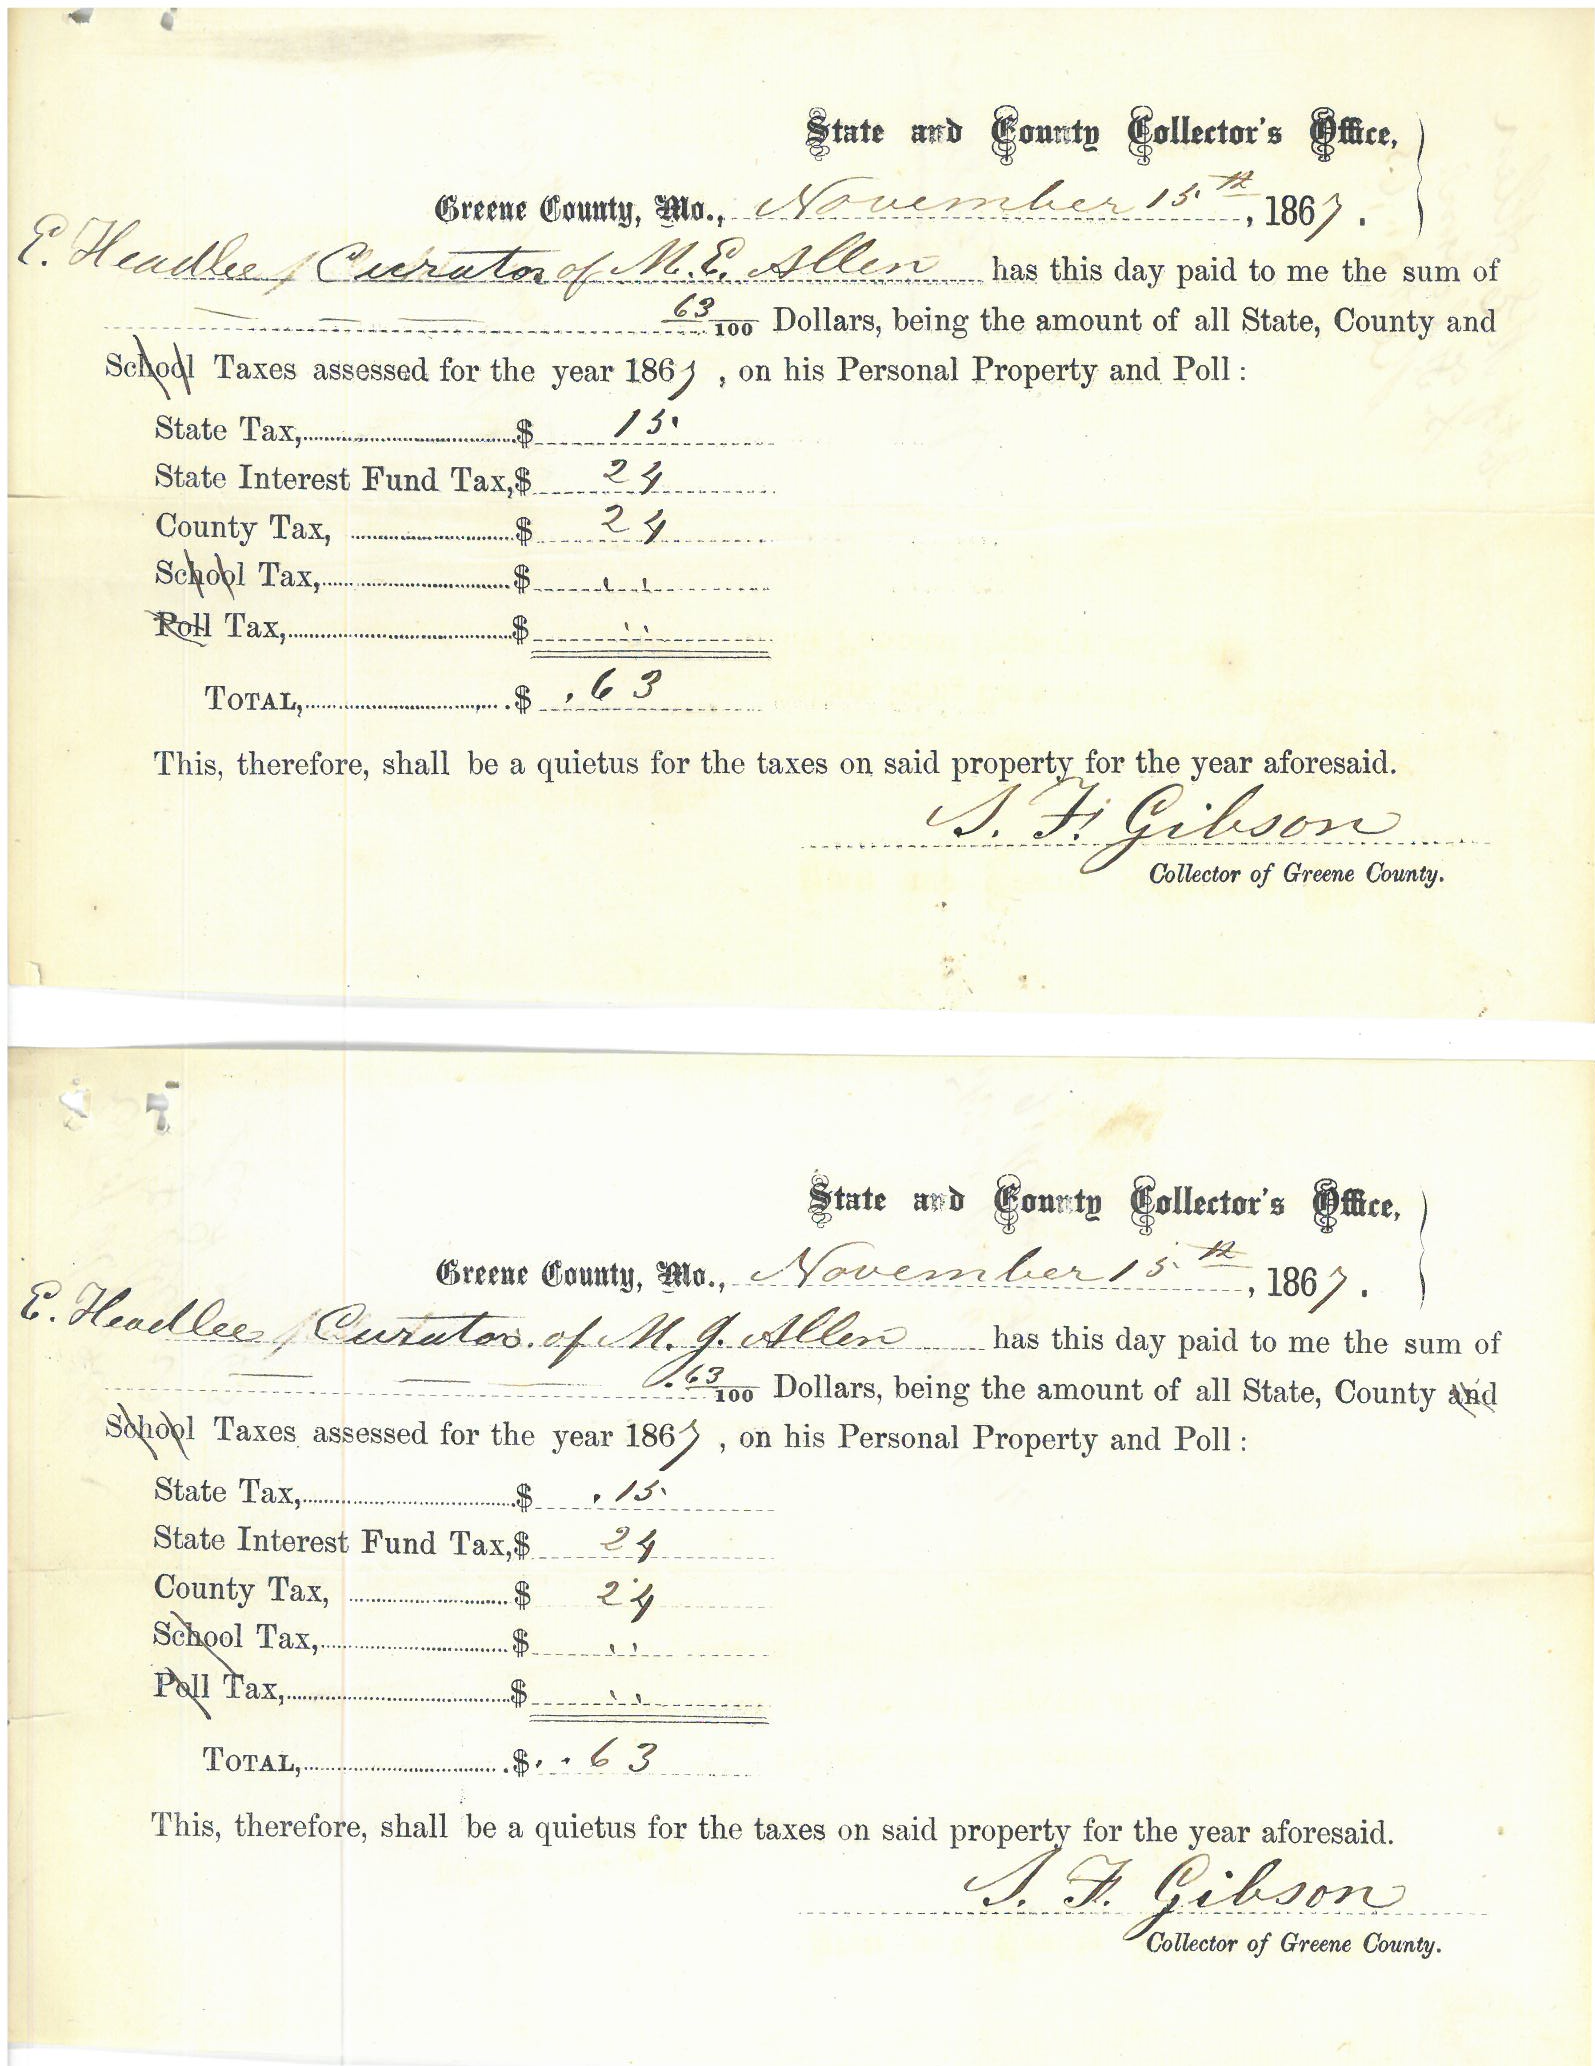 State and County Collector's Office,
Greene County, Mo., November 15th, 1867.
E. Headlee / Curator of M. E. Allen has this day paid to me the sum of
63/100 Dollars, being the amount of all State, County and
School Taxes assessed for the year 1867, on his Personal Property and Poll:
State Tax, $ 15.
State Interest Fund Tax, $ 24
County Tax, $ 24
School Tax, $ " "
Poll Tax, $ " "
TOTAL, $ .63
This, therefore, shall be a quietus for the taxes on said property for the year aforesaid.
S. F. Gibson
Collector of Greene County.
State and County Collector's Office,
Greene County, Mo., November 15th, 1867.
E. Headlee / Curator of M. J. Allen has this day paid to me the sum of
.63/100 Dollars, being the amount of all State, County and
School Taxes assessed for the year 1867, on his Personal Property and Poll:
State Tax, $ .15.
State Interest Fund Tax, $ 24
County Tax, $ 24
School Tax, $ " "
Poll Tax, $ " "
TOTAL, $ .63
This, therefore, shall be a quietus for the taxes on said property for the year aforesaid.
S. F. Gibson
Collector of Greene County.